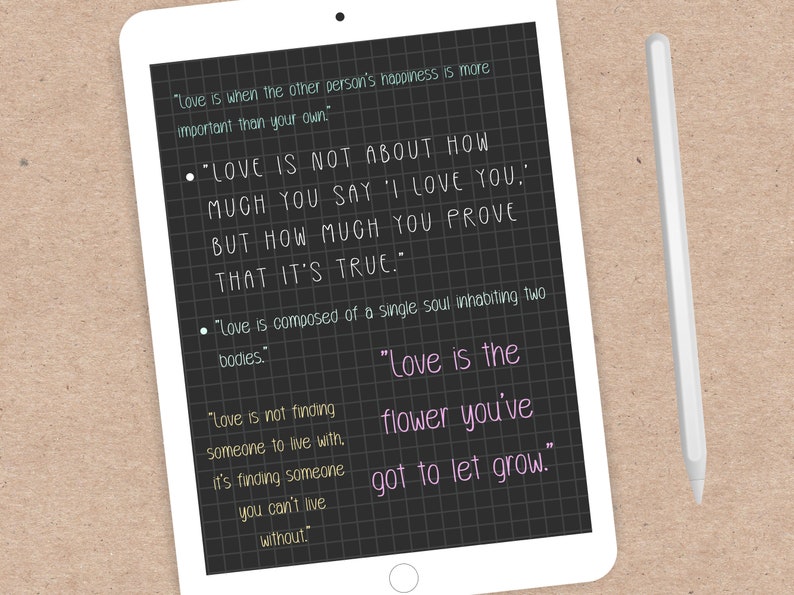 "Love is when the other person's happiness is more
important than your own."
• "LOVE IS NOT ABOUT HOW
MUCH YOU SAY 'I LOVE YOU,'
BUT HOW MUCH YOU PROVE
THAT IT'S TRUE."
• "Love is composed of a single soul inhabiting two
bodies."
"Love is not finding
someone to live with,
it's finding someone
you can't live
without."
"Love is the
flower you've
got to let grow."